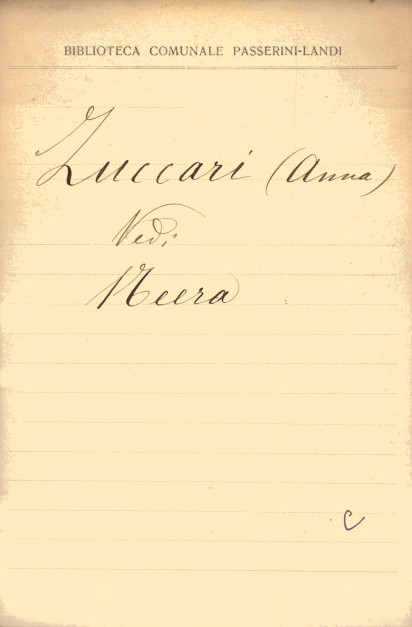 BIBLIOTECA COMUNALE PASSERINI-LANDI
Zuccari (Anna)
Vedi
Neera
C